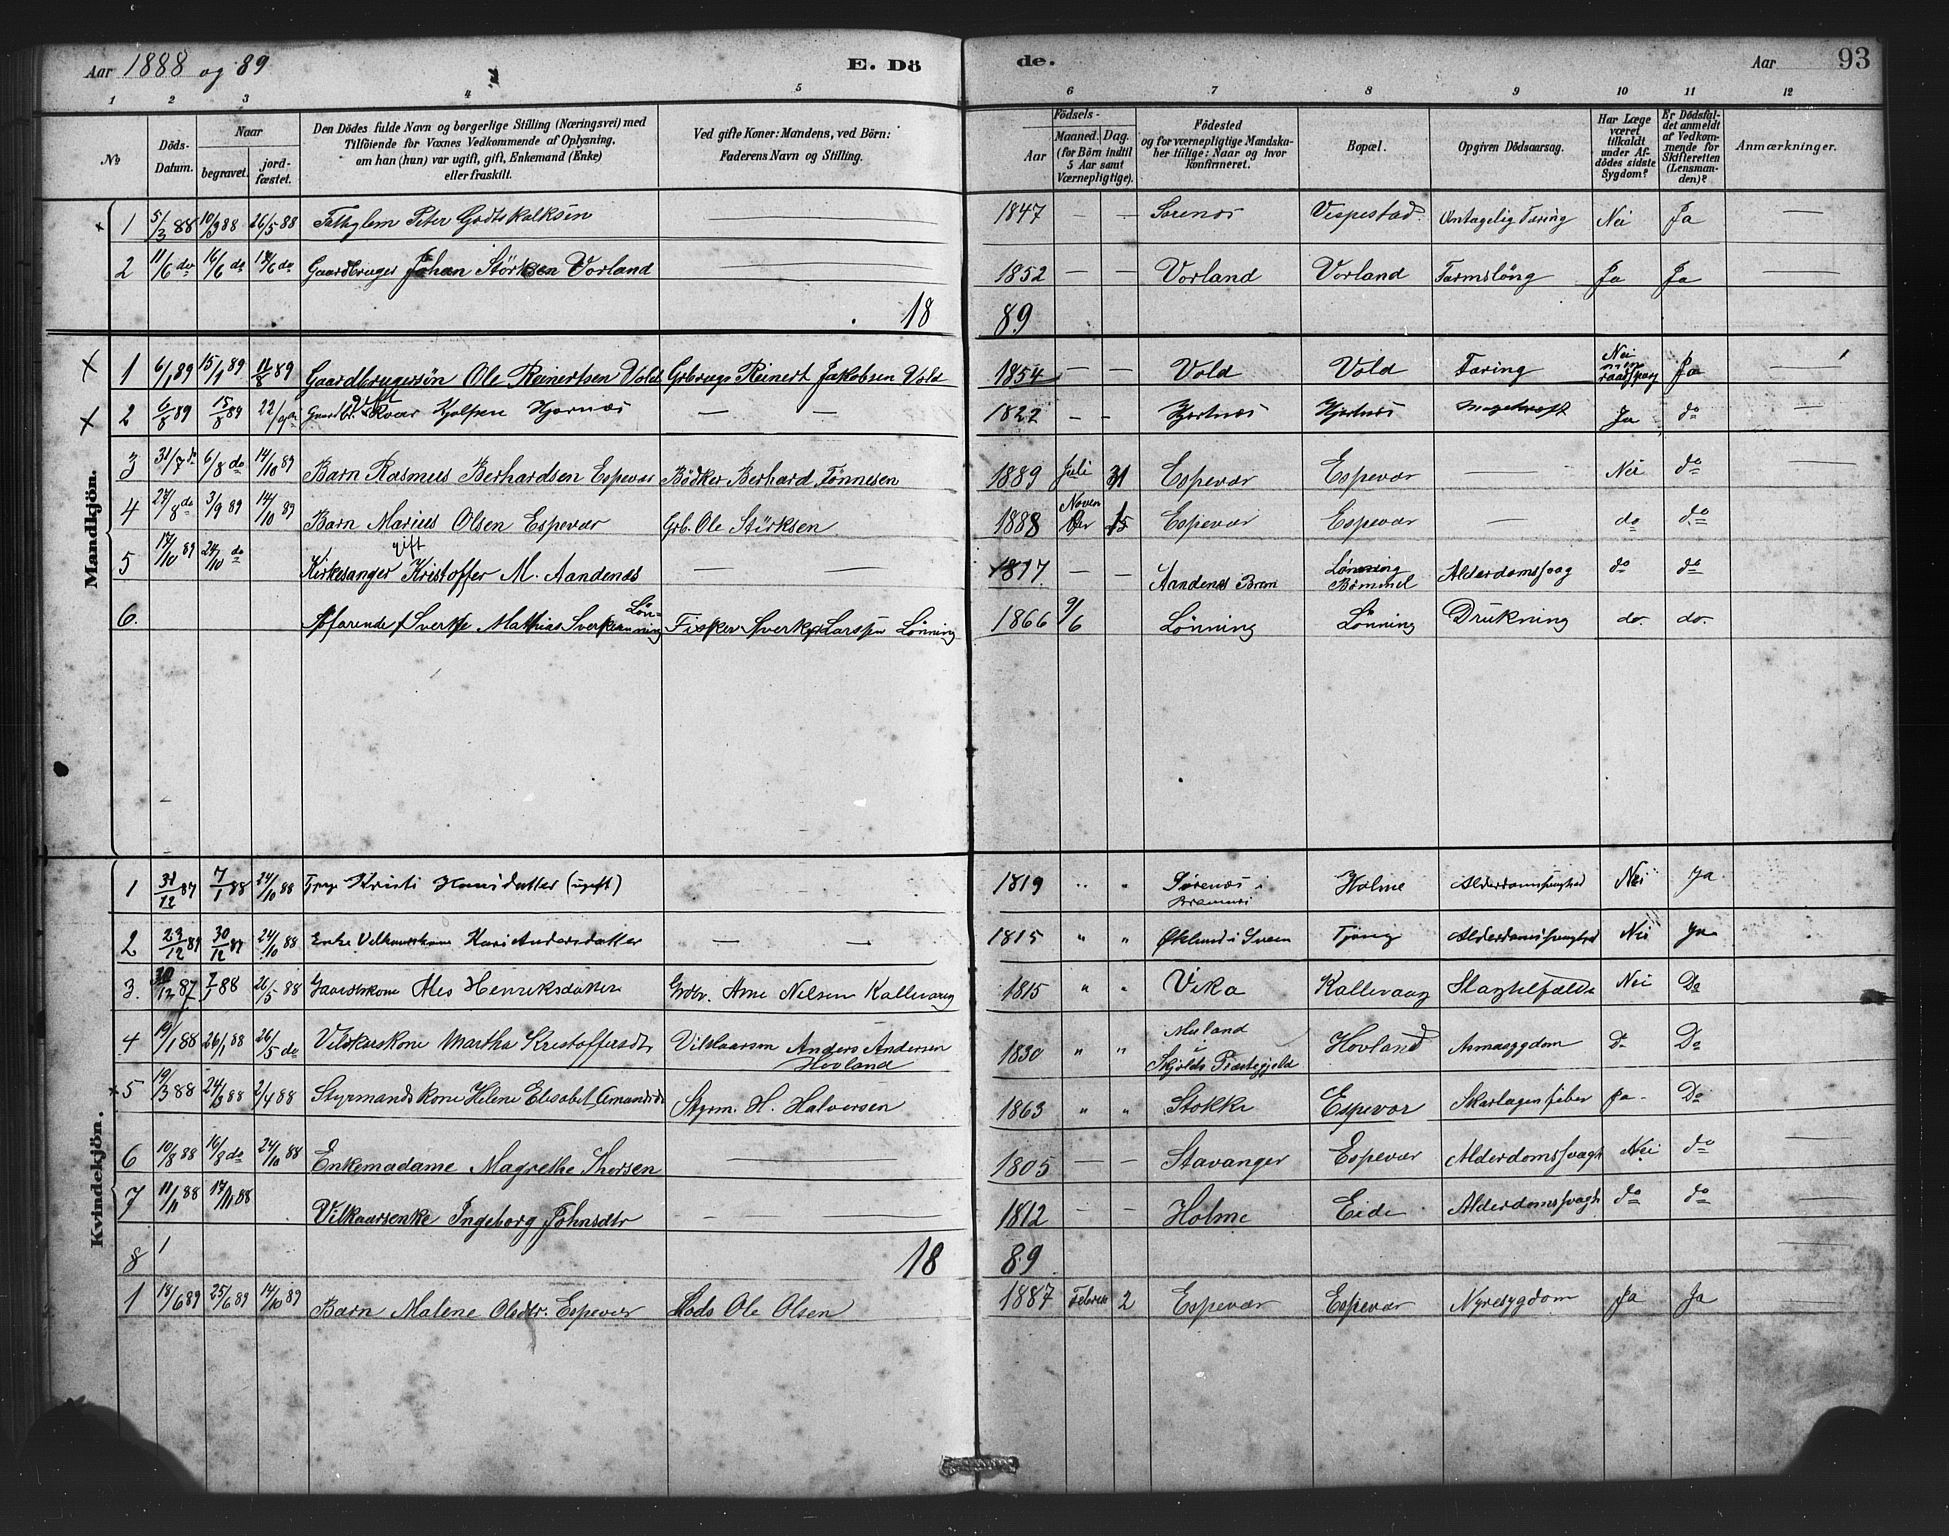 Aar 1888 og 89 E. Dö de. Aar 93
1 2 3 4 5 6 7 8 9 10 11 12
No
Döds-Datum.
Naar
begravet.
jord-fæstet.
Den Dödes fulde Navn og borgerlige Stilling (Næringsvei) med
Tilföiende for Voxnes Vedkommende af Oplysning,
om han (hun) var ugift, gift, Enkemand (Enke)
eller fraskilt.
Ved gifte Koner: Mandens, ved Börn:
Faderens Navn og Stilling.
Födsels-
Aar
Maaned. Dag.
(for Börn indtil
5 Aar samt
Værnepligtige).
Födested
og for værnepligtige Mandska-
ber tillige: Naar og hvor
konfirmeret.
Bopæl.
Opgiven Dödsaarsag.
Har Læge
været
tilkaldt
under Af-
dödes sidste
Sygdom?
Er Dödsfal-
det anmeldt
af Vedkom-
mende for
Skifteretten
(Lensman-
den)?
Anmærkninger.
1 5/3 88 10/3 88 26/5 88 Peter Godtskalksen 1847 – – Sørenæs Vespestad Antagelig Tæring Nei Ja
2 11/6 do 16/6 do 17/6 do Gaardbruger Johan Störksen Vorland 1852 – – Vorland Vorland Tarmslöng Ja Ja
18 89
Mandkjön.
1 6/1 89 15/1 89 11/8 89 Gaardbrugersön Ole Reinertsen Vold Grbruger Reinert Jakobsen Vold 1854 – – Vold Vold Tæring Nei Ja
2 6/8 89 15/8 89 gift Hjortnæs – – 1822 – – Hjortnæs Hjortnæs Ja do
3 31/7 do 6/8 do 14/10 89 Barn Rasmus Berhardsen Espevær Bödker Berhard Tönnesen 1889 Juli 31 Espevær Espevær – Nei do
4 27/8 do 3/9 89 14/10 89 Barn Marius Olsen Espevær Grb. Ole Störksen 1888 Novenber 15 Espevær Espevær – do do
5 17/10 89 24/10 do Kirkesanger gift Kristoffer M. Aandenæs – – 1817 – – Aandenæs Lönning Bömmel Alderdomssvag do do
6. Söfarende Sverke Mathias Sverkesen Lönning Fisker Sverke Larsen Lönning 1866 9/6 Lönning Lönning Drukning do. do.
Kvindekjön.
1 31/12 87 7/1 88 24/10 88 Kristi Hansdatter (ugift) 1819 " " Sørenæs i Holme Alderdomssvaghed Nei Ja
2 23/12 87 30/12 87 24/10 88 Enke Kari Andersdatter – – 1815 " " Økland i Sveen Tjong Alderdomssvaghed Nei Ja
3. 30/12 87 7/1 88 26/5 88 Gaardkone Ales Henriksdatter Grdbr. Arne Nilsen Kallevaag 1815 " " Vika Kallevaag Slagtilfælde Nei Do
4 19/1 88 26/1 88 26/5 do Vilkarskone Martha Kristoffersdt. Vilkaarsm Anders Andersen Hovland 1830 " " Skjolds Præstegjeld Hovland Asmasygdom Do Do
5 19/3 88 24/3 88 2/4 88 Styrmandskone Helene Elisabet Amandsdt Styrm. H. Halversen 1863 " " Stokke Espevær Skarlagensfeber Ja. Do
6 10/8 88 16/8 do 24/10 88 Enkemadame Magrethe Thorsen 1805 – – Stavanger Espevær Alderdomssvagh Nei do
7 11/11 88 17/11 88 Vilkaarsenke Ingeborg Johnsdtr – 1812 – – Holme Eide Alderdomssvagh do do
8 18 89
1 18/6 89 25/6 89 14/10 89 Barn Malene Olsdtr. Espevær Lods Ole Olsen 1887 Februar 2 Espevær Espevær Nyresygdom Ja Ja